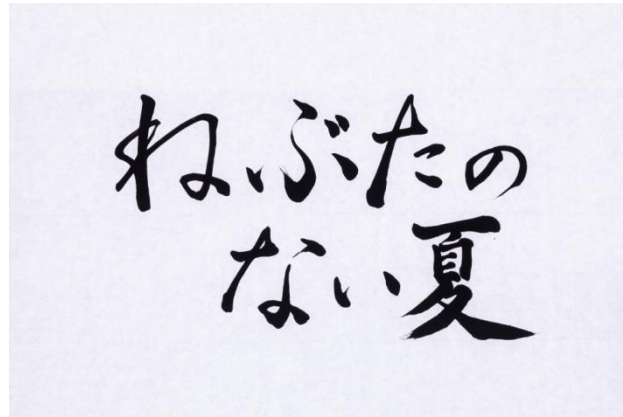 ねぶたの
ない夏